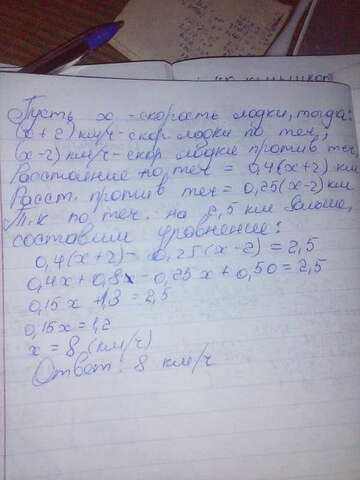 Пусть x - скорость лодки, тогда:
(x+2) км/ч - скор лодки по теч,
(x-2) км/ч - скор лодке против теч
Расстояние по теч = 0,4(x+2) км
Расст. против теч = 0,25(x-2) км
Т.к по теч. на 2,5 км больше,
составим уравнение:
0,4(x+2) - 0,25(x-2) = 2,5
0,4x+0,8 - 0,25x+0,50 = 2,5
0,15x + 1,3 = 2,5
0,15x = 1,2
x = 8 (км/ч)
Ответ: 8 км/ч